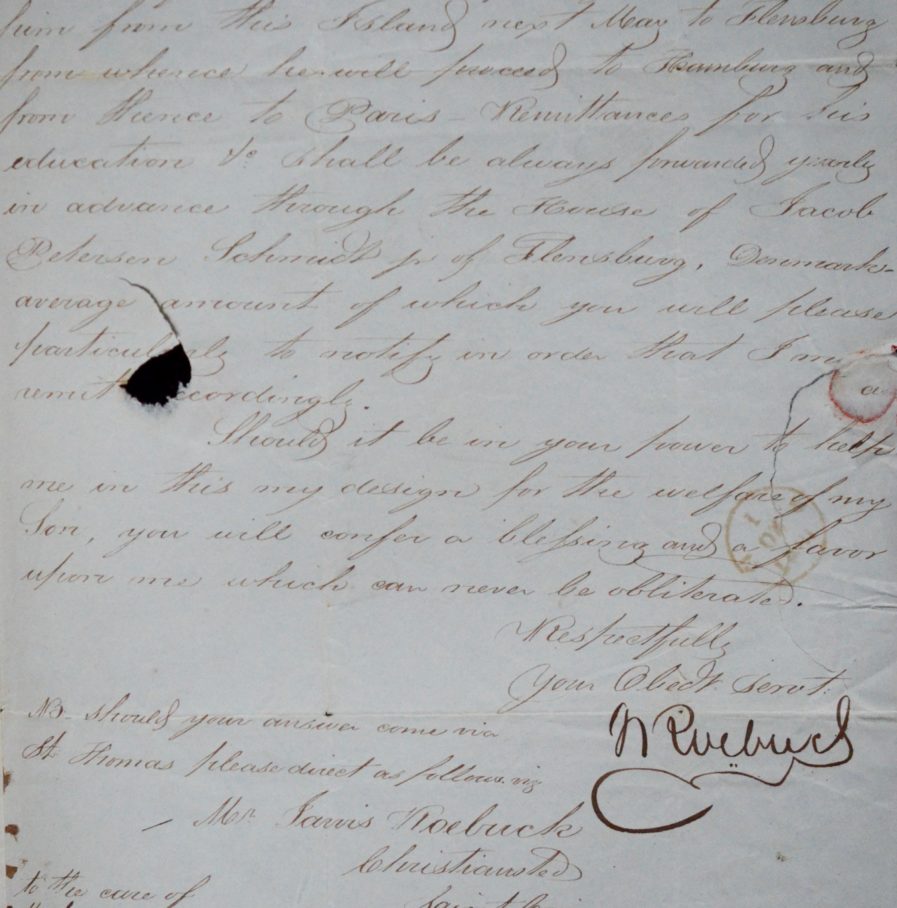 him from this Island next May to Flensburg
from whence he will proceed to Hamburg and
from thence to Paris - Remittances for his
education &c shall be always forwarded yearly
in advance through the House of Jacob
Petersen Schmidt jr of Flensburg, Denmark -
average amount of which you will please
particularly to notify in order that I may
remit accordingly.
Should it be in your power to help
me in this my design for the welfare of my
Son, you will confer a blessing and a favor
upon me which can never be obliterated.
Respectfully
Your Obedt. Servt.
Roebuck
NB. should your answer come via
St. Thomas please direct as follows viz
Mr. Jarvis Roebuck
Christiansted
to the care of